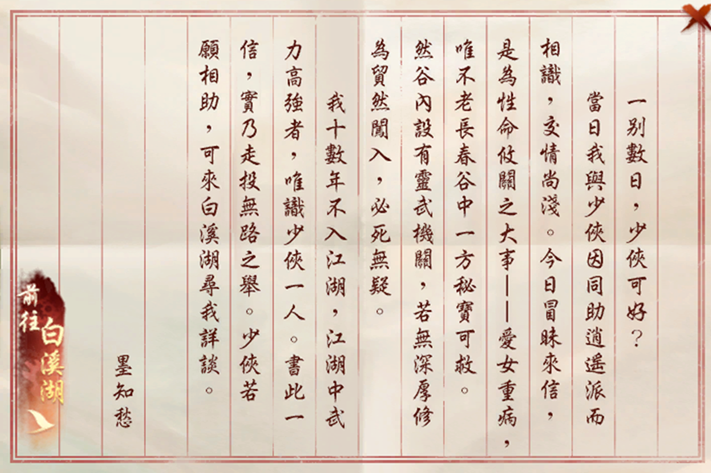 一別數日，少俠可好？
當日我與少俠因同助逍遙派而
相識，交情尚淺。今日冒昧來信，
是為性命攸關之大事——愛女重病，
唯不老長春谷中一方秘寶可救。
然谷內設有靈武機關，若無深厚修
為貿然闖入，必死無疑。
我十數年不入江湖，江湖中武
力高強者，唯識少俠一人。書此一
信，實乃走投無路之舉。少俠若
願相助，可來白溪湖尋我詳談。
墨知愁
前往
白溪湖